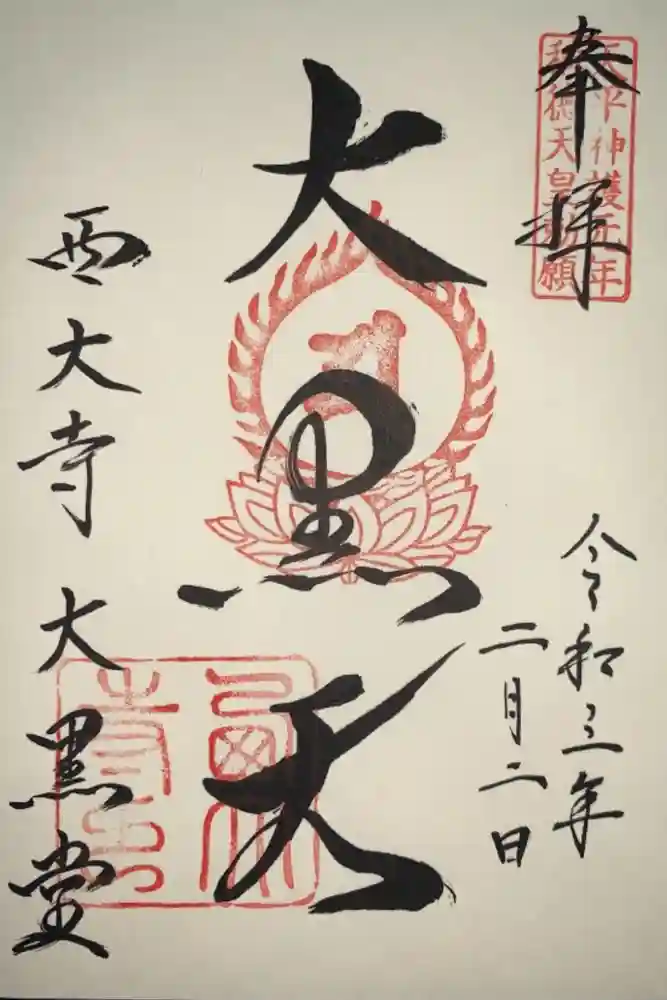 奉拝
天平神護元年
称徳天皇勅願
令和三年
二月二日
大黒天
西大寺 大黒堂